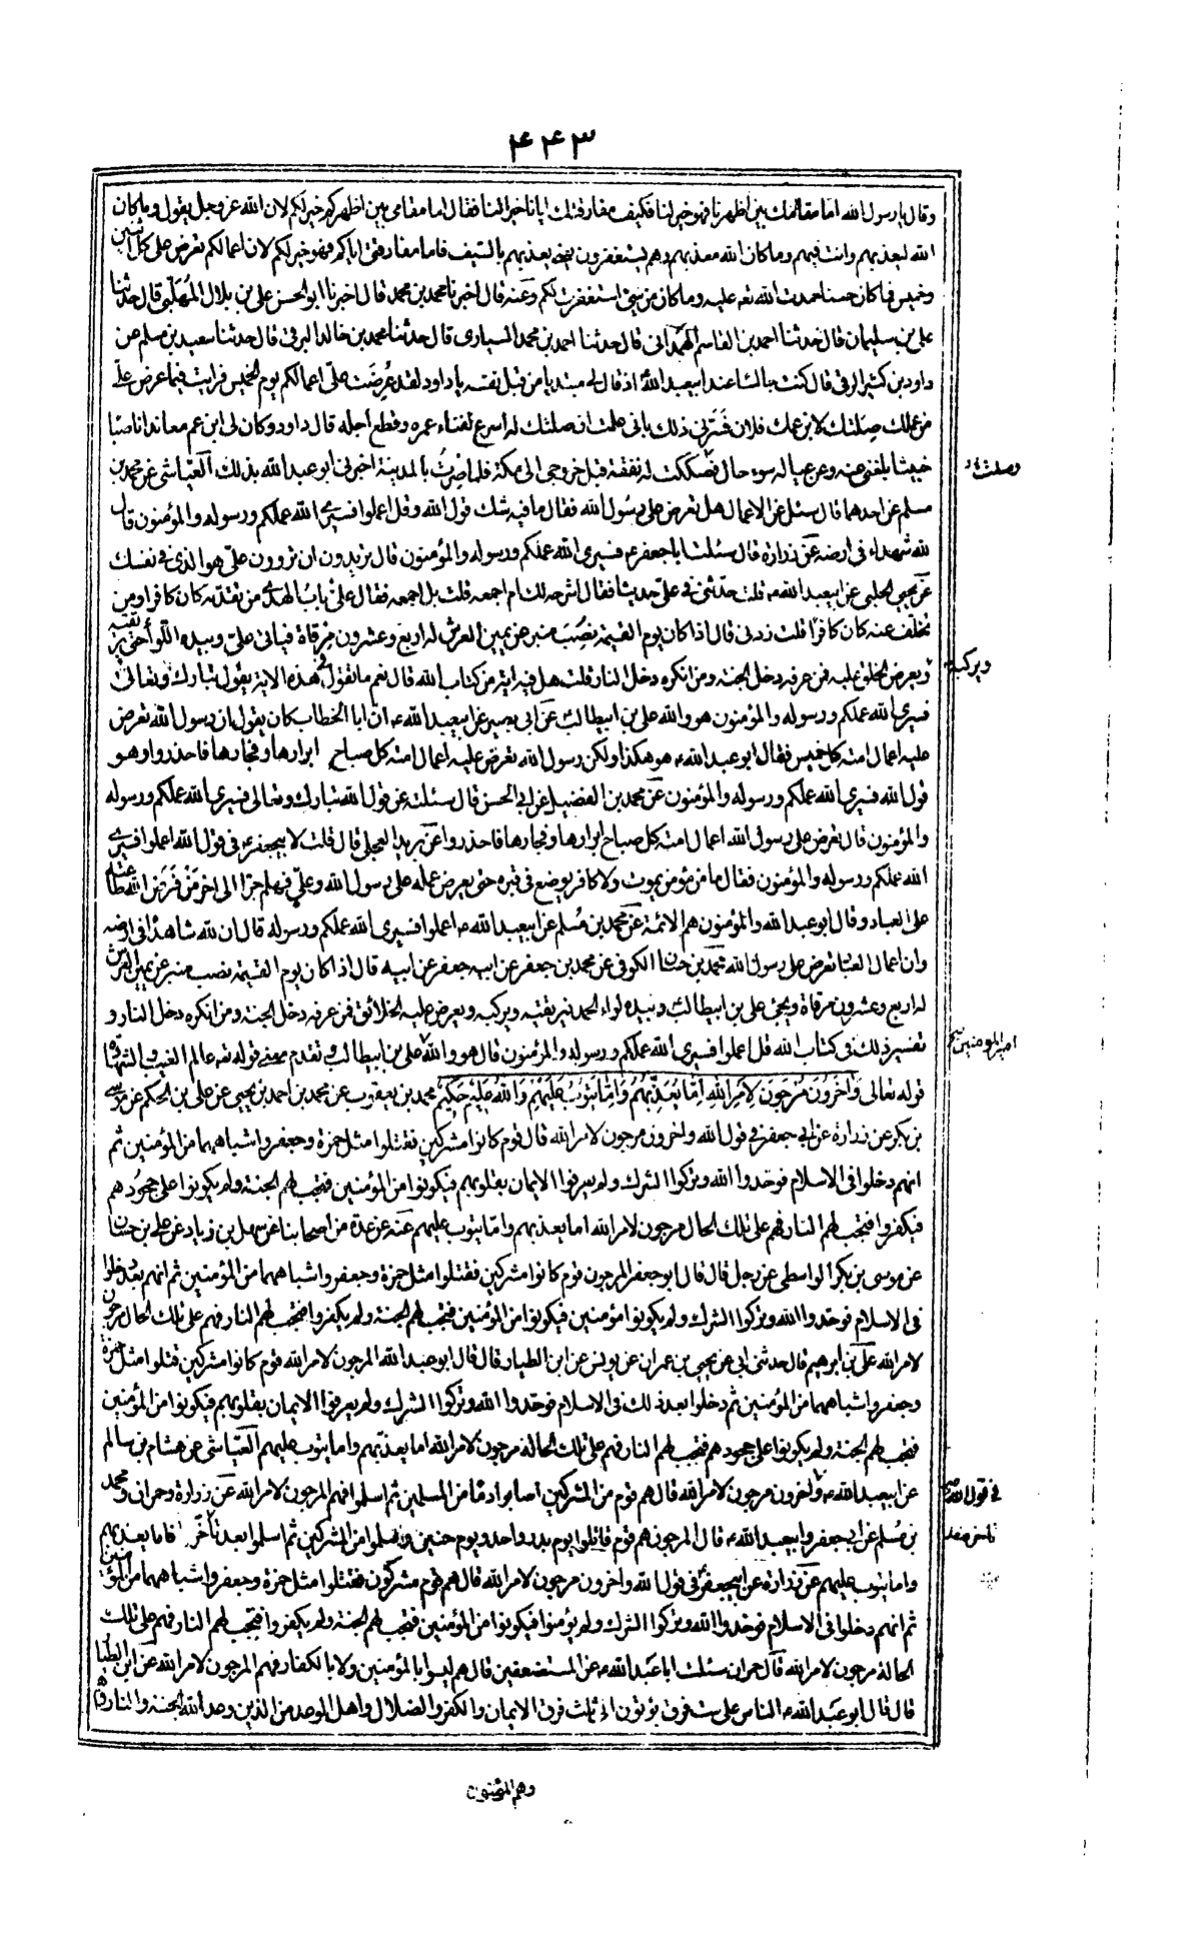 ۴۴۳
وقال يا رسول الله اما مقامك بين اظهرنا فهو خير لنا فكيف مفارقتك ايانا خير لنا فقال اما مقامي بين اظهركم خير لكم لان الله عز وجل يقول وما كان
الله ليعذبهم وانت فيهم وما كان الله معذبهم وهم يستغفرون يعني يعذبهم بالسيف فاما مفارقتي اياكم فهو خير لكم لان اعمالكم تعرض علي كل اثنين
وخميس فما كان حسنا حمدت الله تعه عليه وما كان من سيئ استغفرت لكم وعنه قال اخبرنا محمد بن محمد قال اخبرنا ابو الحسن علي بن بلال المهلبي قال حدثنا
علي بن سليمان قال حدثنا احمد بن القاسم الهمداني قال حدثنا احمد بن محمد السياري قال حدثنا محمد بن خالد البرقي قال حدثنا سعيد بن مسلم عن
داود بن كثير الرقي قال كنت جالسا عند ابيعبد الله اذ قال لي مبتديا من قبل نفسه يا داود لقد عُرضت علي اعمالكم يوم الخميس فرايت فيما عرض علي
من عملك صلتك لابن عمك فلان فسرني ذلك باني علمت ان صلتك له اسرع لفناء عمره وقطع اجله قال داود وكان لي ابن عم معاندا ناصبا
خبيثا بلغني عنه وعن عياله سوء حال فصككت له نفقة قبل خروجي الى مكة فلما صرتُ بالمدينة اخبرني ابو عبد الله بذلك العياشي عن محمد بن
مسلم عن احدهما قال سئل عن الاعمال هل تعرض على رسول الله فقال ما فيه شك قول الله وقل اعملوا فسيرى الله عملكم ورسوله والمؤمنون قال
لله شهداء في ارضه عن زرارة قال سئلت ابا جعفر ع فسيرى الله عملكم ورسوله والمؤمنون قال تريدون ان تروون علي هو الذي في نفسك
عن يحيى الحلبي عن ابيعبد الله ء قلت حدثني في علي حديثا فقال اشرحه لك ام اجمعه قلت بل اجمعه فقال علي باب الهدى من تقدمه كان كافرا ومن
تخلف عنه كان كافرًا قلت زدني قال اذا كان يوم القيمة نصب منبر عن يمين العرش له اربع وعشرون مرقاة فياتي علي وبيده اللواء حتى يرتقيه
ويعرض الخلق عليه فمن عرفه دخل الجنة ومن انكره دخل النار قلت هل فيه اية من كتاب الله قال نعم ما تقول في هذه الاية يقول تبارك وتعالى
فسيرى الله عملكم ورسوله والمؤمنون هو والله علي بن ابيطالب عن ابي بصير عن ابيعبد الله ء ان ابا الخطاب كان يقول ان رسول الله تعرض
عليه اعمال امته كل خميس فقال ابو عبد الله ء هو هكذا ولكن رسول الله تعرض عليه اعمال امته كل صباح ابرارها وفجارها فاحذروا وهو
قول الله فسيرى الله عملكم ورسوله والمؤمنون عن محمد بن الفضيل عن ابي الحسن قال سئلته عن قول الله تبارك وتعالى فسيرى الله عملكم ورسوله
والمؤمنون قال تعرض على رسول الله اعمال امته كل صباح ابرارها وفجارها فاحذروا عن بريد العجلي قال قلت لابيجعفر ء في قول الله اعملوا فسيرى
الله عملكم ورسوله والمؤمنون فقال ما من مؤمن يموت ولا كافر يوضع في قبره حتى يعرض عمله على رسول الله وعلي فهلم جرا الى اخر من فرض الله طاعته
على العباد وقال ابو عبد الله والمؤمنون هم الائمة عن محمد بن مسلم عن ابيعبد الله ء اعملوا فسيرى الله عملكم ورسوله قال ان لله شاهدا في ارضه
وان اعمال العباد تعرض على رسول الله محمد بن حسان الكوفي عن محمد بن جعفر عن ابيه جعفر عن ابيه قال اذا كان يوم القيمة نصب منبر عن يمين العرش
له اربع وعشرون مرقاة ويجئ علي بن ابيطالب وبيده لواء الحمد فيرتقيه ويركبه ويعرض عليه الخلائق فمن عرفه دخل الجنة ومن انكره دخل النار و
تفسير ذلك في كتاب الله قل اعملوا فسيرى الله عملكم ورسوله والمؤمنون قال هو والله علي بن ابيطالب وتقدم معنى قوله تعه عالم الغيب والشهادة
قوله تعالى وَآخَرُونَ مُرْجَوْنَ لِأَمْرِ اللهِ اِمَّا يُعَذِّبُهُمْ وَاِمَّا يَتُوبُ عَلَيْهِمْ وَاللهُ عَلِيمٌ حَكِيمٌ محمد بن يعقوب عن محمد بن احمد بن يحيى عن علي بن الحكم عن موسى
بن بكر عن زرارة عن ابي جعفر في قول الله واخرون مرجون لامر الله قال قوم كانوا مشركين فقتلوا مثل حمزة وجعفر واشباههما من المؤمنين ثم
انهم دخلوا في الاسلام فوحدوا الله وتركوا الشرك ولم يعرفوا الايمان بقلوبهم فيكونوا من المؤمنين فتجب لهم الجنة ولم يكونوا على جحودهم
فيكفروا فتجب لهم النار فهم على تلك الحال مرجون لامر الله اما يعذبهم واما يتوب عليهم عنه عن عدة من اصحابنا عن سهل بن زياد عن علي بن حسان
عن موسى بن بكر الواسطي عن رجل قال قال ابو جعفر المرجون قوم كانوا مشركين فقتلوا مثل حمزة وجعفر واشباههما من المؤمنين ثم انهم بعد دخلوا
في الاسلام فوحدوا الله وتركوا الشرك ولم يكونوا مؤمنين فيكونوا من المؤمنين فتجب لهم الجنة ولم يكفروا فتجب لهم النار فهم على تلك الحال مرجون
لامر الله علي بن ابرهيم قال حدثني ابي عن يحيى بن عمران عن يونس عن ابن الطيار قال قال ابو عبد الله المرجون لامر الله قوم كانوا مشركين قتلوا مثل حمزة
وجعفر واشباههما من المؤمنين ثم دخلوا بعد ذلك في الاسلام فوحدوا الله وتركوا الشرك ولم يعرفوا الايمان بقلوبهم فيكونوا من المؤمنين
فتجب لهم الجنة ولم يكونوا على جحودهم فتجب لهم النار فهم على تلك الحالة مرجون لامر الله اما يعذبهم واما يتوب عليهم العياشي عن هشام بن سالم
عن ابيعبد الله ء واخرون مرجون لامر الله قال هم قوم من المشركين اصابوا دما من المسلمين ثم اسلموا فهم المرجون لامر الله عن زرارة وحمران ومحمد
بن مسلم عن ابيجعفر وابيعبد الله ء قال المرجون هم قوم قاتلوا يوم بدر واحد ويوم حنين وسلموا من المشركين ثم اسلموا بعد تأخر فاما يعذبهم
واما يتوب عليهم عن زرارة عن ابيجعفر في قول الله واخرون مرجون لامر الله قال هم قوم مشركون فقتلوا مثل حمزة وجعفر واشباههما من المؤمنين
ثم انهم دخلوا في الاسلام فوحدوا الله وتركوا الشرك ولم يؤمنوا فيكونوا من المؤمنين فتجب لهم الجنة ولم يكفروا فتجب لهم النار فهم على تلك
الحالة مرجون لامر الله قال حمران سئلت ابا عبد الله ء عن المستضعفين قال هم ليسوا بالمؤمنين ولا بالكفار فهم المرجون لامر الله عن ابن الطيار
قال قال ابو عبد الله ء الناس على ست فرق يؤتون الى ثلث فرق الايمان والكفر والضلال واهل الوعد من الذين وعد الله الجنة والنار
وصلت
ويركبه
امير المؤمنين
في قول الله
وهم المؤمنون